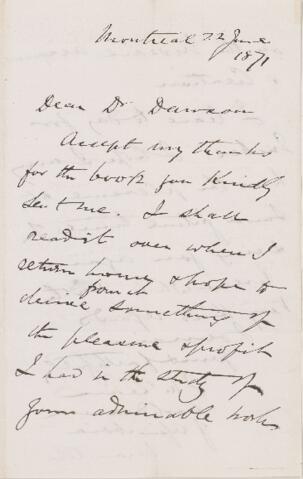 Montreal 22 June
1871
Dear Dr Dawson
Accept my thanks
for the book you kindly
sent me. I shall
read it over when I
return home & hope to
from it
derive something of
the pleasure & profit
I had in the study of
your admirable work